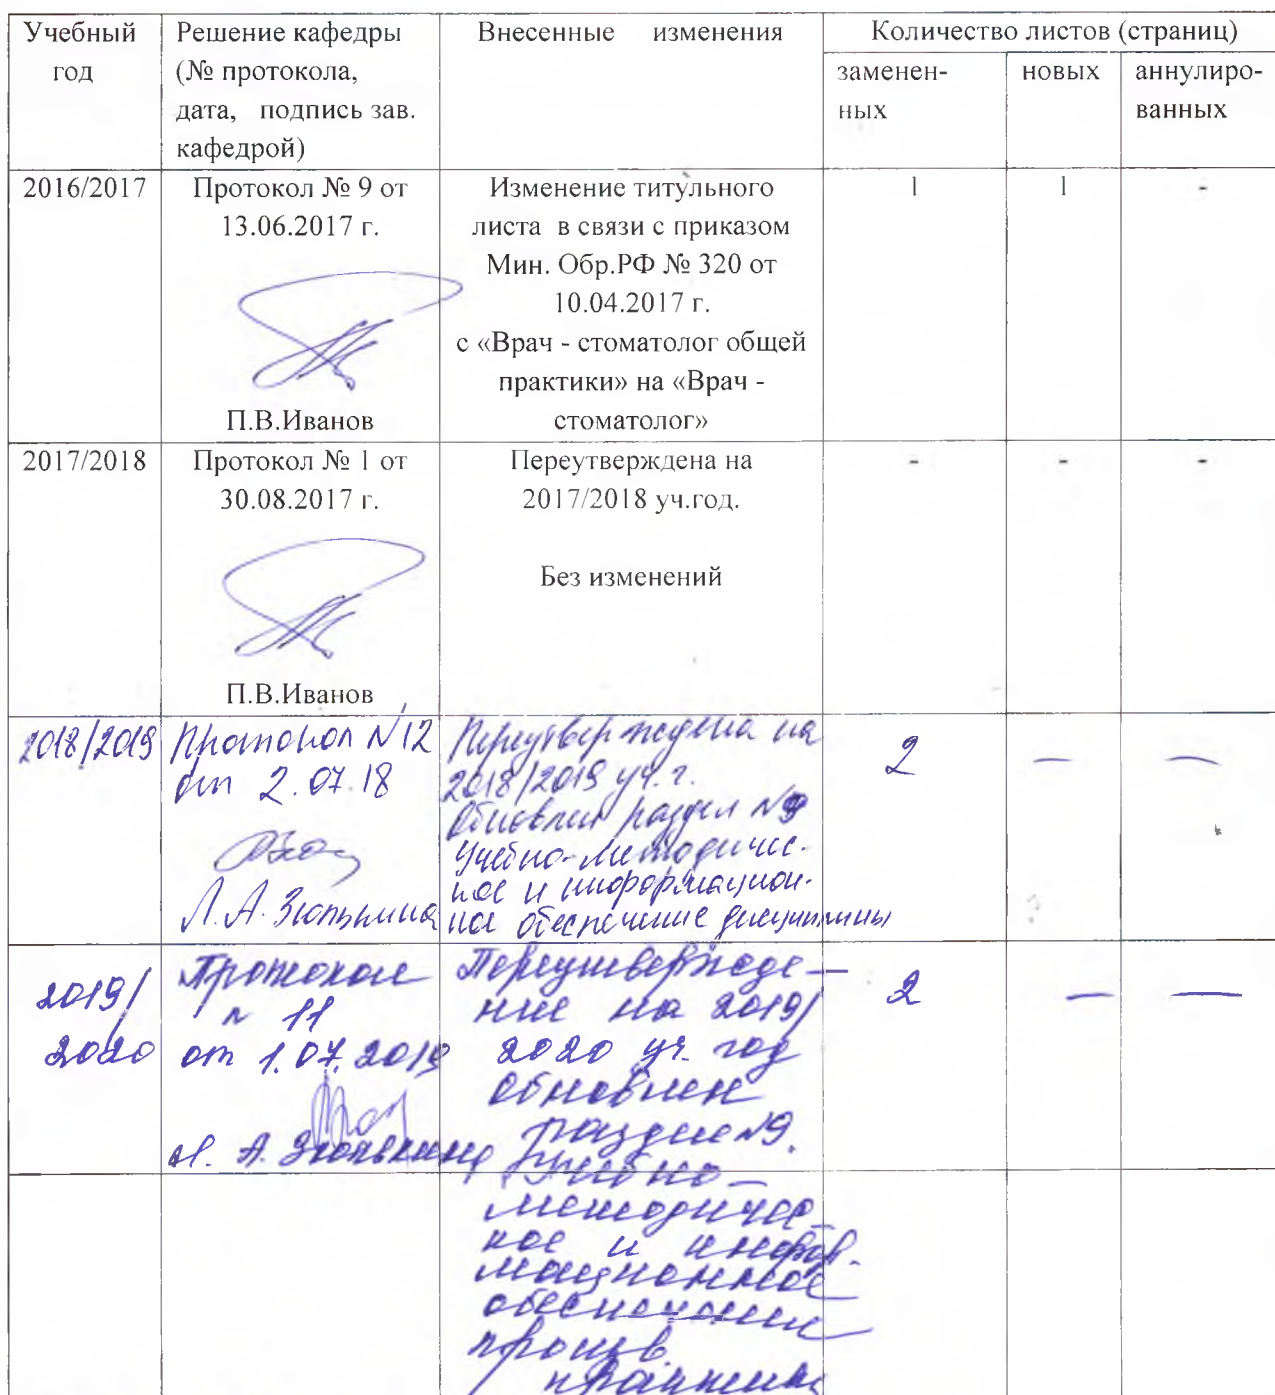 Учебный год
Решение кафедры
(№ протокола,
дата, подпись зав.
кафедрой)
Внесенные изменения
Количество листов (страниц)
заменен-
ных
новых
аннулиро-
ванных
2016/2017
Протокол № 9 от
13.06.2017 г.
П.В.Иванов
Изменение титульного
листа в связи с приказом
Мин. Обр.РФ № 320 от
10.04.2017 г.
с «Врач - стоматолог общей
практики» на «Врач -
стоматолог»
1
1
-
2017/2018
Протокол № 1 от
30.08.2017 г.
П.В.Иванов
Переутверждена на
2017/2018 уч.год.
Без изменений
-
-
-
2018/2019
Протокол N 12
от 2.07.18
Л.А. Зюлькина
Переутверждена на
2018/2019 уч. г.
Обновлен раздел N9
Учебно-методичес-
кое и информацион-
ное обеспечение дисциплины
2
—
—
2019/
2020
Протокол
N 11
от 1.07.2019
Л. А. Зюлькина
Переутвержде-
ние на 2019/
2020 уч. год
Обновлен
раздел N9.
Учебно-
методичес-
кое и инфор-
мационное
обеспечение
произв.
практики
2
—
—